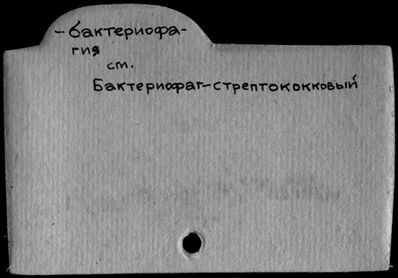 -бактериофа-
гия
см.
Бактериофаг-стрептококковый